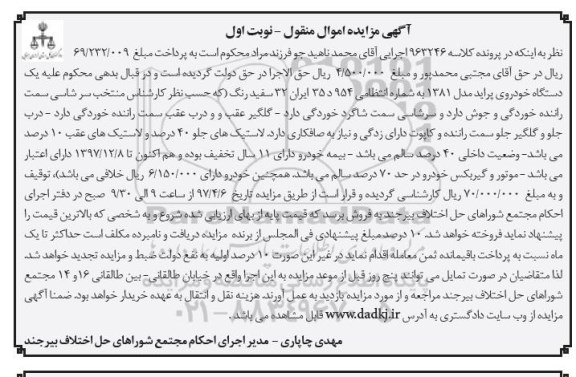 آگهی مزایده اموال منقول - نوبت اول
نظر به اینکه در پرونده کلاسه ۹۶۳۲۴۶ اجرایی آقای محمد ناهید جو فرزند مراد محکوم است به پرداخت مبلغ ۶۹/۲۳۲/۰۰۹
ریال در حق آقای مجتبی محمدپور و مبلغ ۴/۵۰۰/۰۰۰ ریال حق الاجرا در حق دولت گردیده است و در قبال بدهی محکوم علیه یک
دستگاه خودروی پراید مدل ۱۳۸۱ به شماره انتظامی ۹۵۴ د ۳۵ ایران ۳۲ سفید رنگ (که حسب نظر کارشناس منتخب سر شاسی سمت
راننده خوردگی و جوش دارد و سرشاسی سمت شاگرد خوردگی دارد - گلگیر عقب و و درب عقب سمت راننده خوردگی دارد - درب
جلو و گلگیر جلو سمت راننده و کاپوت دارای زدگی و نیاز به صافکاری دارد. لاستیک های جلو ۴۰ درصد و لاستیک های عقب ۱۰ درصد
می باشد- وضعیت داخلی ۴۰ درصد سالم می باشد - بیمه خودرو دارای ۱۱ سال تخفیف بوده و هم اکنون تا ۱۳۹۷/۱۲/۸ دارای اعتبار
می باشد - موتور و گیربکس خودرو در حد ۷۰ درصد سالم می باشد. همچنین خودرو دارای ۶/۱۵۰/۰۰۰ ریال خلافی می باشد)، توقیف
و به مبلغ ۷۰/۰۰۰/۰۰۰ ریال کارشناسی گردیده و قرار است از طریق مزایده تاریخ ۹۷/۴/۶ از ساعت ۹ الی ۹/۳۰ صبح در دفتر اجرای
احکام مجتمع شوراهای حل اختلاف بیرجند به فروش برسد که قیمت پایه از بهای ارزیابی شده شروع و به شخصی که بالاترین قیمت را
پیشنهاد نماید فروخته خواهد شد. ۱۰ درصد مبلغ پیشنهادی فی المجلس از برنده مزایده دریافت و نامبرده مکلف است حداکثر تا یک
ماه نسبت به پرداخت باقیمانده ثمن معامله اقدام نماید در غیر این صورت ۱۰ درصد اولیه به نفع دولت ضبط و مزایده تجدید خواهد شد.
لذا متقاضیان در صورت تمایل می توانند پنج روز قبل از موعد مزایده به این اجرا واقع در خیابان طالقانی- بین طالقانی ۱۶ و ۱۴ مجتمع
شوراهای حل اختلاف بیرجند مراجعه و از مورد مزایده بازدید به عمل آورند. هزینه نقل و انتقال به عهده خریدار خواهد بود. ضمنا آگهی
مزایده از وب سایت دادگستری به آدرس www.dadkj.ir قابل مشاهده می باشد .
مهدی چاپاری - مدیر اجرای احکام مجتمع شوراهای حل اختلاف بیرجند